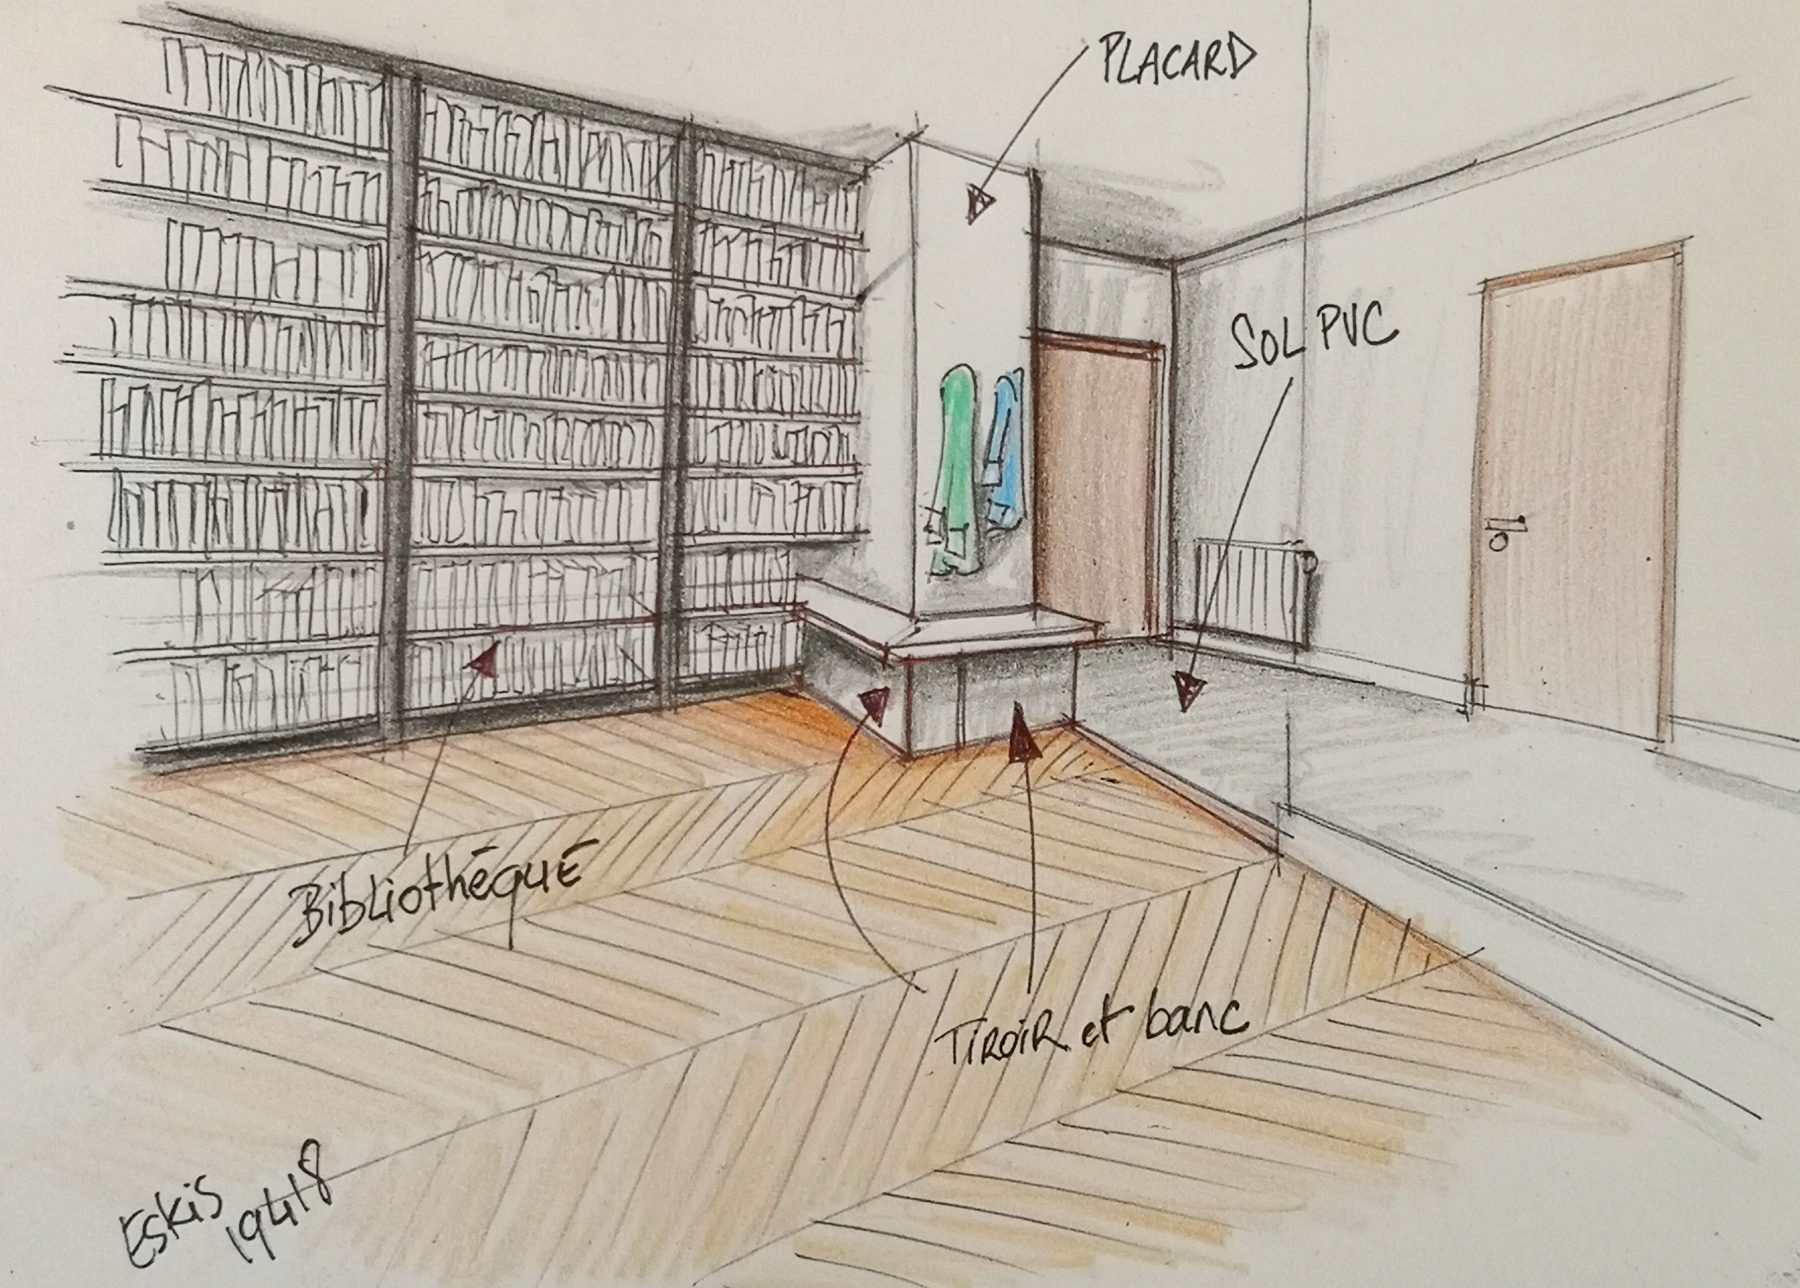 PLACARD
SOL PVC
Bibliothéqué
TiROiR et banc
Eskis
19418